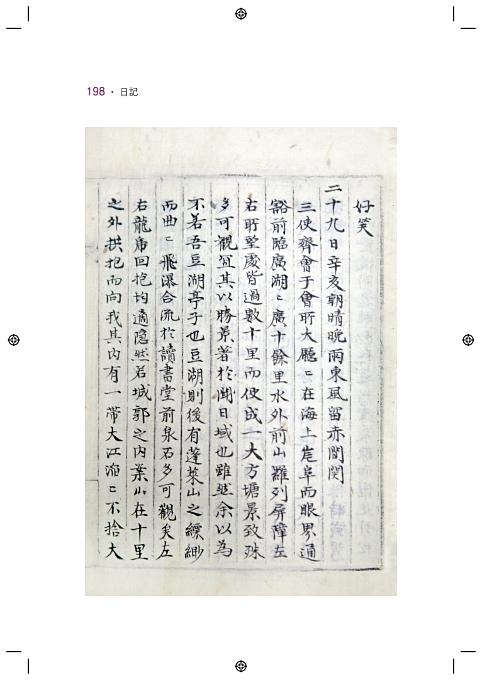 198 · 日記
好笑
二十九日辛亥朝晴晩雨東風留赤間関
三使齊會于會所大廳〻在海上崖阜而眼界通
豁前臨廣湖〻廣十餘里水外前山羅列屏障左
右所望處皆過數十里而便成一大方塘景致殊
多可觀宜其以勝景著於聞日域也雖然余以為
不若吾豆湖亭子也豆湖則後有蓬萊山之縹緲
而曲〻飛瀑合流於讀書堂前泉石多可觀矣左
右龍席回抱均適隐然若城郭之内案山在十里
之外拱抱而向我其内有一帶大江滔〻不捨大